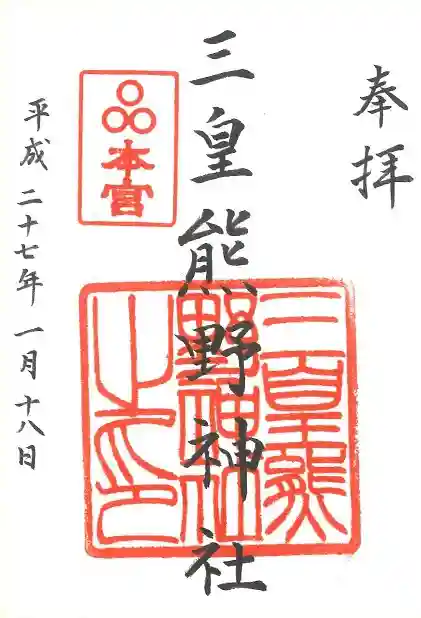 奉拝
三皇熊野神社
三皇熊
野神社
之印
本宮
平成二十七年一月十八日